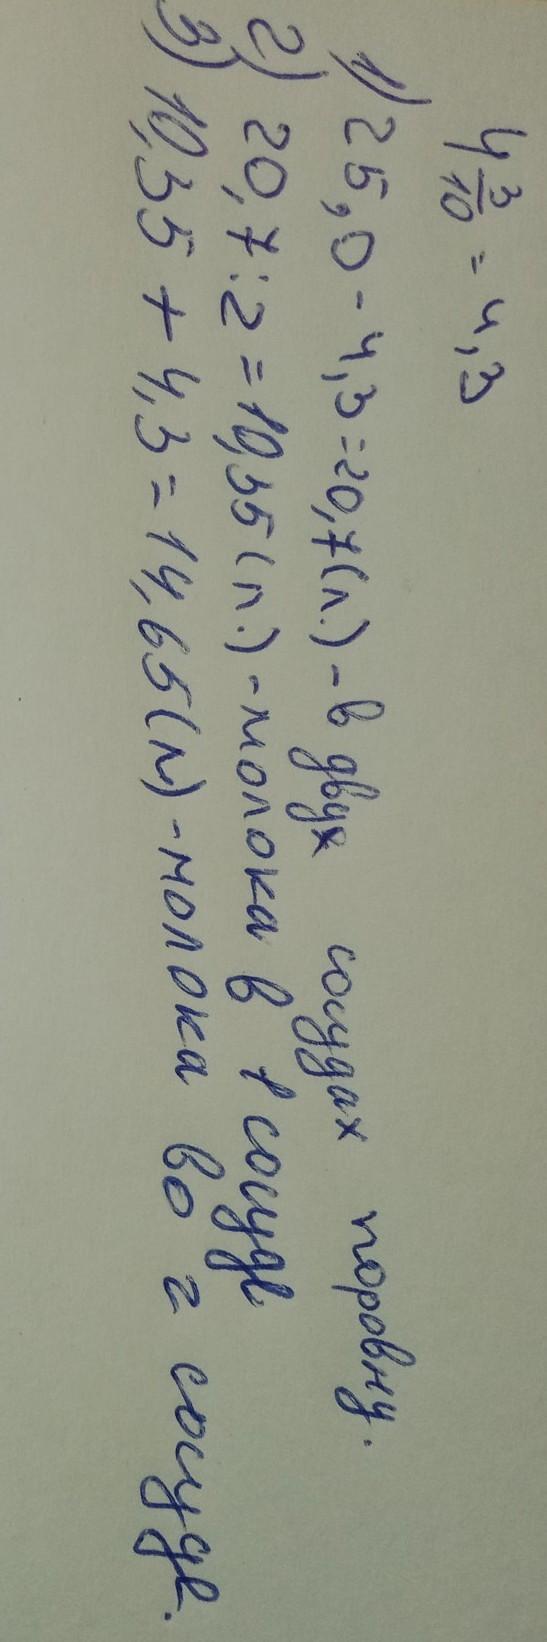 4 3/10 = 4,3
1) 25,0 - 4,3 = 20,7 (л.) - в двух сосудах поровну.
2) 20,7 : 2 = 10,35 (л.) - молока в 1 сосуде
3) 10,35 + 4,3 = 14,65 (л) - молока во 2 сосуде.